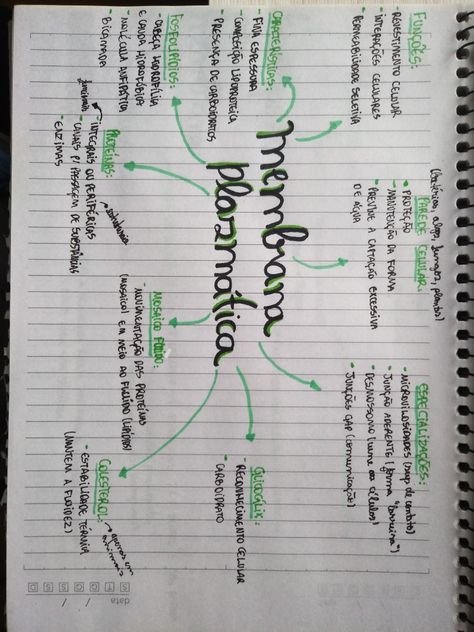 Membrana
plazmática
FUNÇÕES:
- REVESTIMENTO CELULAR
- INTERAÇÕES CELULARES
- PERMEABILIDADE SELETIVA
CARACTERÍSTICAS:
- FINA ESPESSURA
- COMPOSIÇÃO LIPOPROTEICA
- PRESENÇA DE CARBOIDRATOS
FOSFOLIPÍDIOS:
- CABEÇA HIDROFÍLICA
E CAUDA HIDROFÓBICA
- MOLÉCULA ANFIPÁTICA
- BICAMADA
PROTEÍNAS:
- INTEGRAIS OU PERIFÉRICAS
- CANAIS P/ PASSAGEM DE SUBSTÂNCIAS
- ENZIMAS
(bactérias, algas, fungos, plantas)
PAREDE CELULAR:
• PROTEÇÃO
- MANUTENÇÃO DA FORMA
• PREVINE A CAPTAÇÃO EXCESSIVA
DE ÁGUA
MOSAICO FLUIDO:
- MOVIMENTAÇÃO DAS PROTEÍNAS
(MOSAICO) EM MEIO AO FLUIDO (LIPÍDIOS)
ESPECIALIZAÇÕES:
• MICROVILOSIDADES (sup de contato)
• JUNÇÃO ADERENTE (forma "barreira")
• DESMOSSOMO (une as células)
• JUNÇÕES GAP (comunicação)
GLICOCÁLIX:
- RECONHECIMENTO CELULAR
- CARBOIDRATO
COLESTEROL:
apenas em
animais
- ESTABILIDADE TÉRMICA
(MANTÉM A FLUIDEZ)
data
D S T Q Q S S